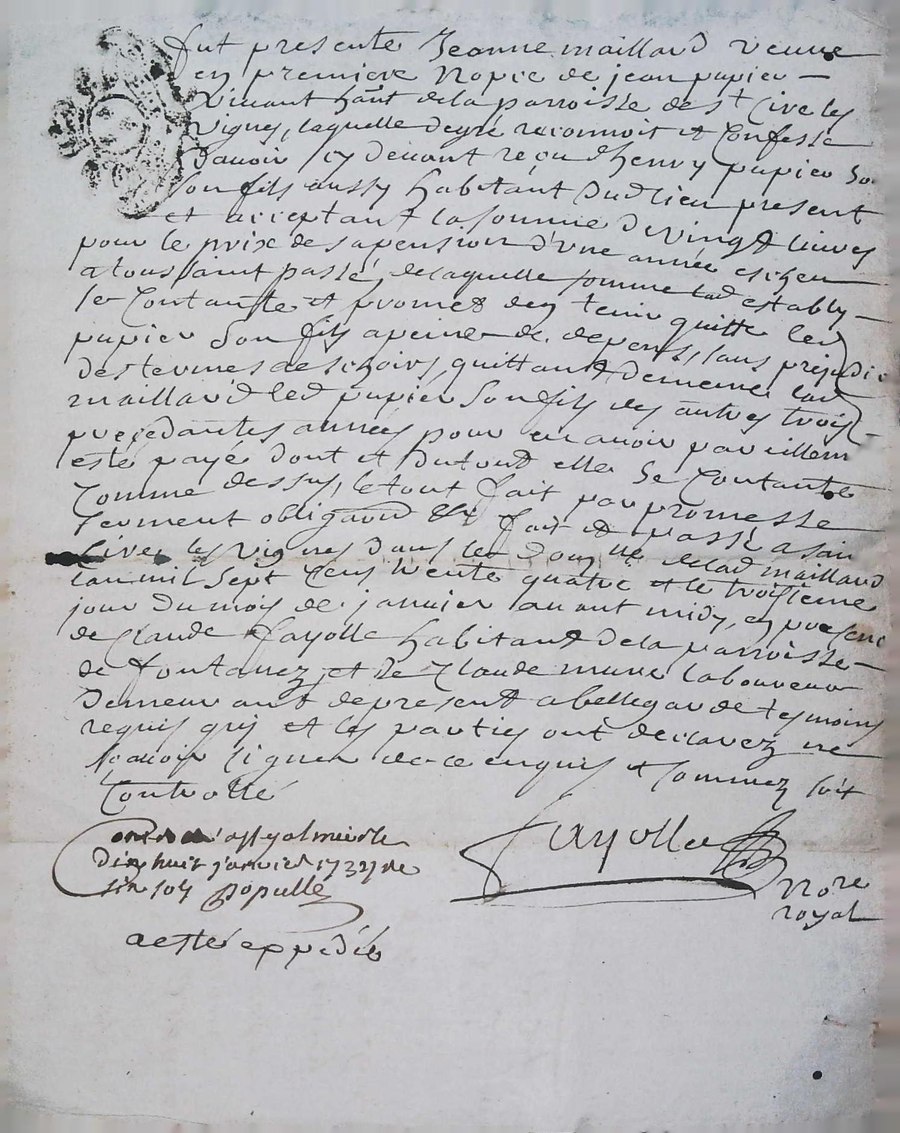 fut presente Jeanne maillard veuve
en premiere Nopce de jean papier
vivant hant de la parroisse de st Cire les
vignes, laquelle de gré reconnoit et Confesse
davoir cy devant reçu dhenry papier
son fils aussy habitant dud lieu present
et acceptant la somme de vingt livres
pour le prix de sa pension d'une année escheu
a toussaint passé, de laquelle somme lad establY
se Contante et promet den tenir quitte led
papier son fils a peine de depens, sans prejudice
des termes de seschoirs, quittant de meme lad
maillard led papier son fils des autres trois
precedantes années pour en avoir pareillem
esté payé dont et du tout elle se Contante
Comme dessus, le tout fait par promesse
serment obligaon &c fait et passé a sain
Cire les vignes dans le de lad maillard
lan mil sept Cens trente quatre et le troisieme
jour du mois de janvier avant midy, en presence
de Claude fayolle habitant de la parroisse
de fontanez, et de Claude mure laboureur
demeurant de present a bellegarde tesmoins
requis qui et les parties ont declarez ne
scavoir signer de ce enquis et sommez soit
Controllé
fayolle
Nore
royal
a st galmier le
dix huit janvier 1734
six sols populle
a esté expedié